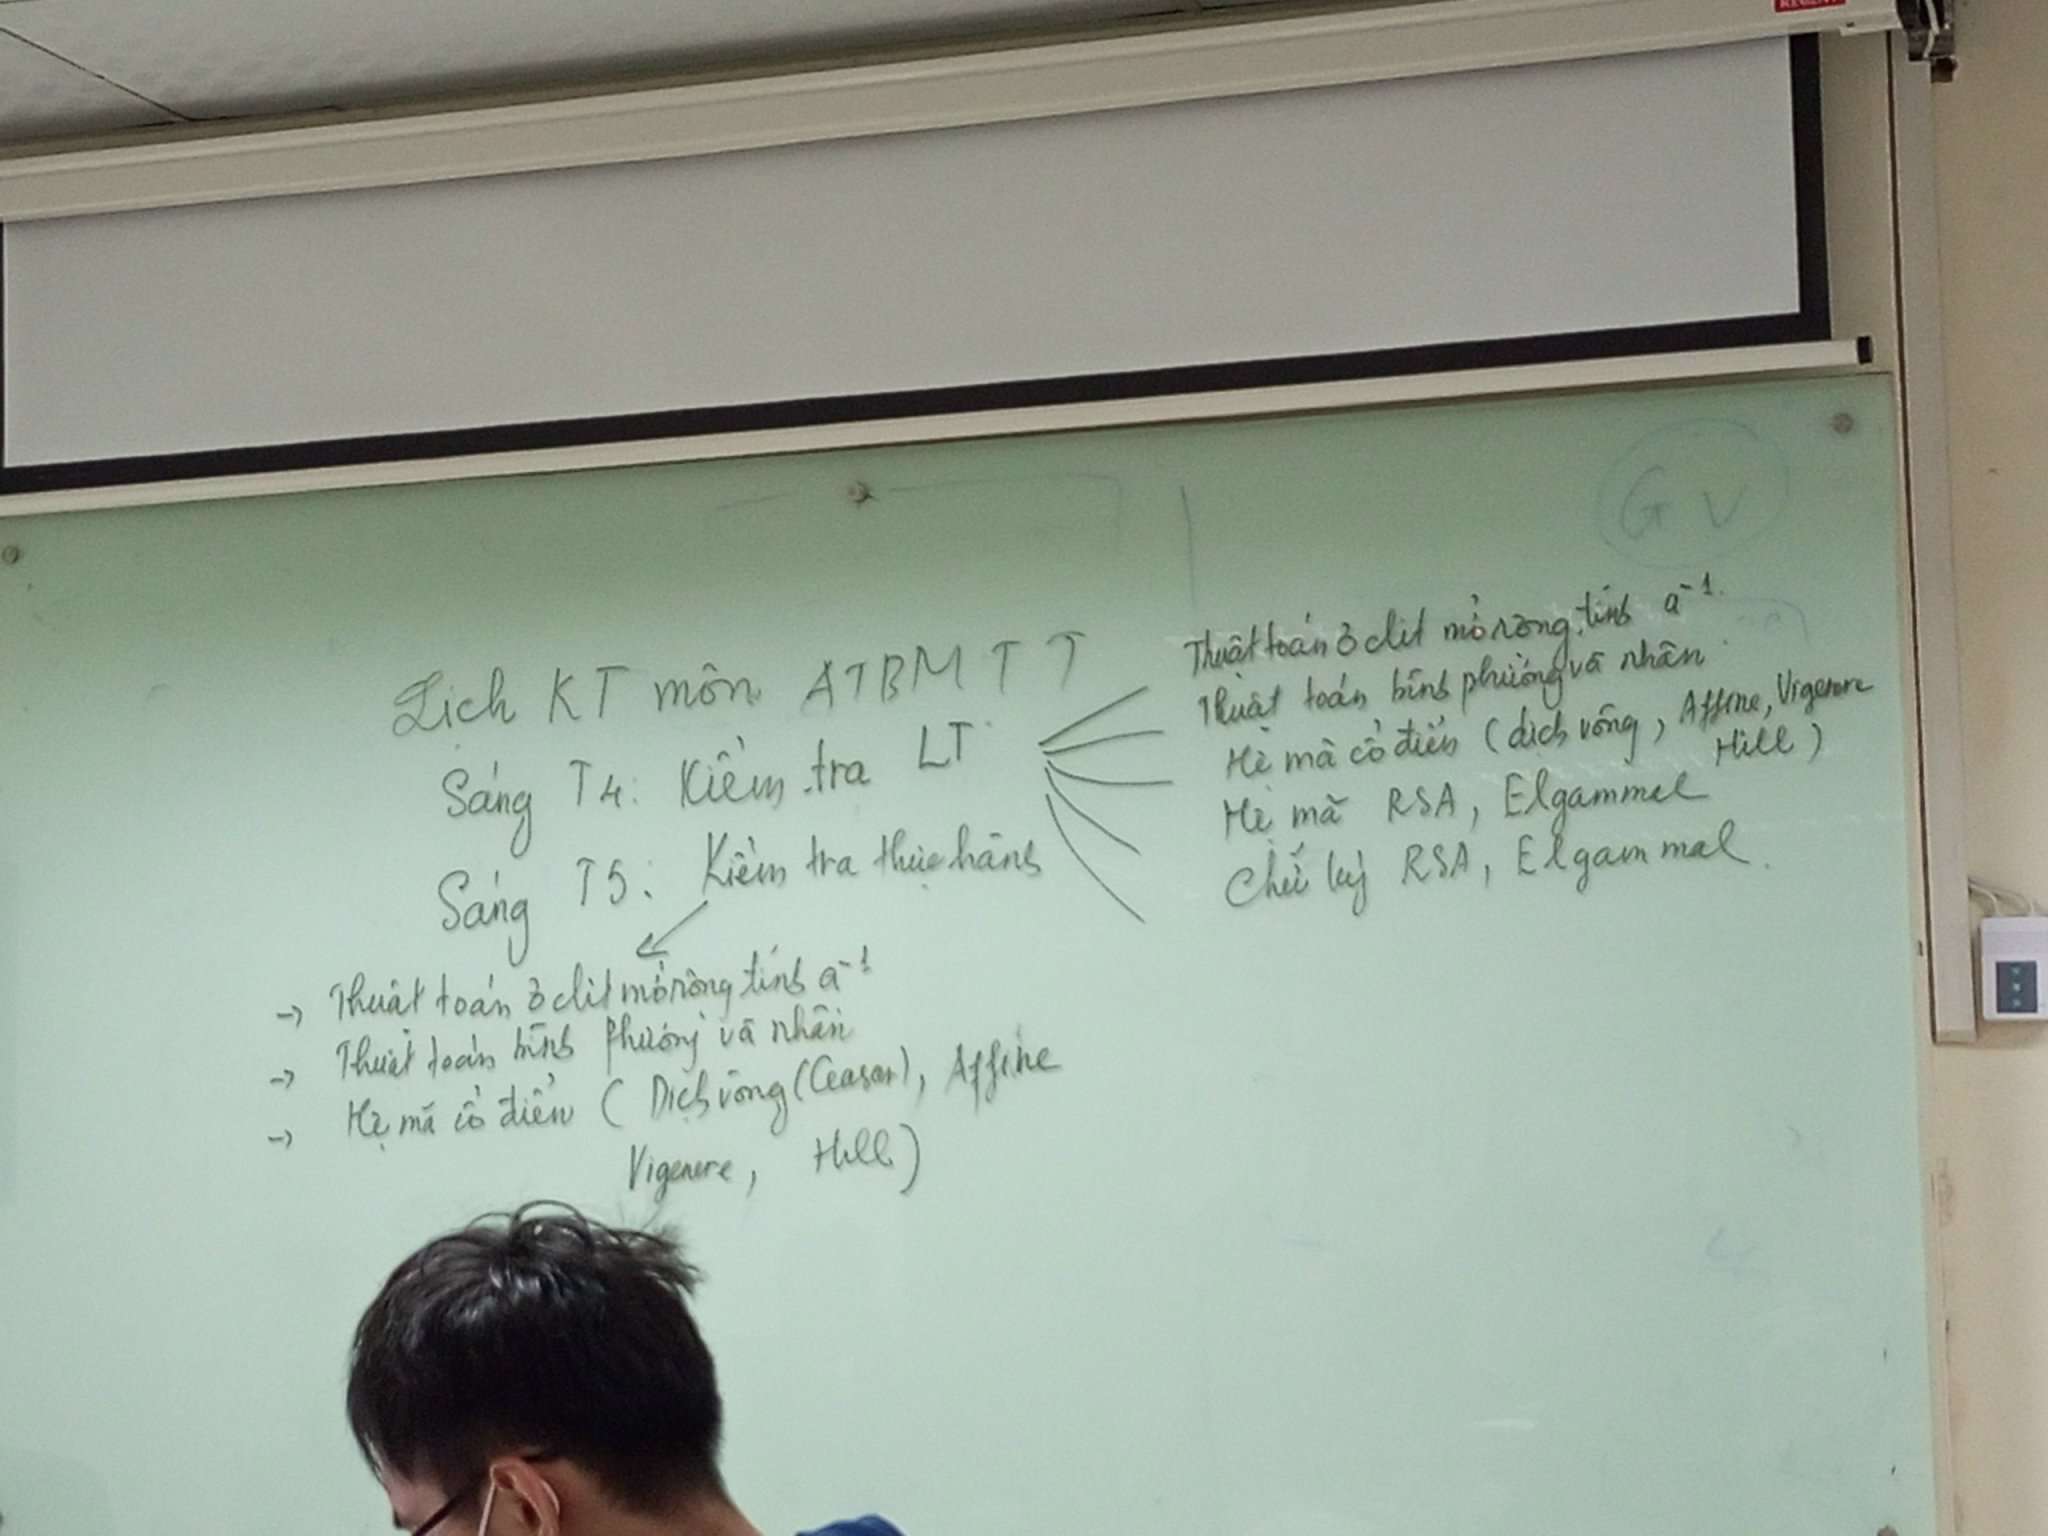 REGENT
GV
Lịch KT môn ATBMTT
Sáng T4: Kiểm tra LT
Thuật toán Ơclit mở rộng, tính a⁻¹.
Thuật toán bình phương và nhân
Hệ mã cổ điển (dịch vòng, Affine, Vigenere
Hill)
Hệ mã RSA, Elgammel
Chữ ký RSA, Elgammal.
Sáng T5: Kiểm tra thực hành
→ Thuật toán Ơclit mở rộng tính a⁻¹
→ Thuật toán bình phương và nhân
→ Hệ mã cổ điển (Dịch vòng (Ceasar), Affine
Vigenere, Hill)